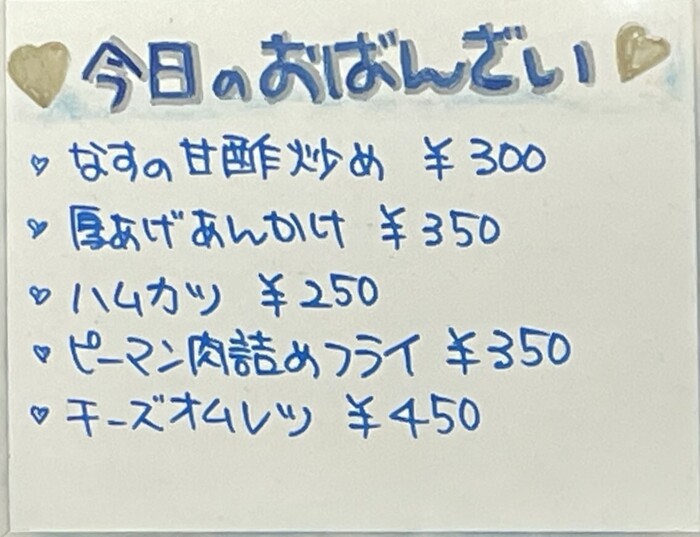 今日のおばんざい
♡ なすの甘酢炒め ¥300
♡ 厚あげあんかけ ¥350
♡ ハムカツ ¥250
♡ ピーマン肉詰めフライ ¥350
♡ チーズオムレツ ¥450